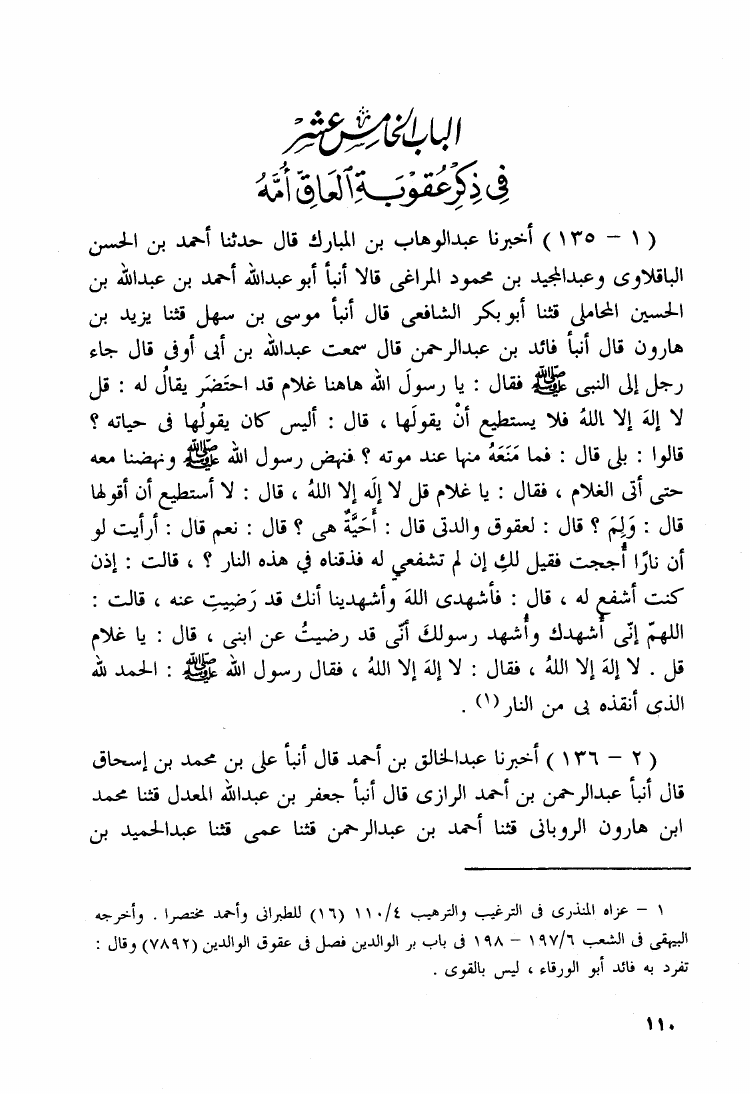 الباب الخامس عشر
فِى ذِكْرِ عُقُوبَةِ ٱلعَاقِّ أُمَّهُ
( ١ – ١٣٥ ) أخبرنا عبدالوهاب بن المبارك قال حدثنا أحمد بن الحسن
الباقلاوى وعبدالمجيد بن محمود المراغى قالا أنبأ أبو عبدالله أحمد بن عبدالله بن
الحسين المحاملى قثنا أبو بكر الشافعى قال أنبأ موسى بن سهل قثنا يزيد بن
هارون قال أنبأ فائد بن عبدالرحمن قال سمعت عبدالله بن أبى أوفى قال جاء
رجل إلى النبى ﷺ فقال : يا رسولَ الله هاهنا غلام قد احتَضَر يقالُ له : قل
لا إلهَ إلا اللهُ فلا يستطيع أنْ يقولَها ، قال : أليس كان يقولُها فى حياته ؟
قالوا : بلى قال : فما مَنَعَهُ منها عند موته ؟ فنهض رسول الله ﷺ ونهضنا معه
حتى أتى الغلام ، فقال : يا غلام قل لا إلَه إلا اللهُ ، قال : لا أستطيع أن أقولها
قال : وَلِمَ ؟ قال : لعقوق والدتى قال : أَحَيَّةٌ هى ؟ قال : نعم قال : أرأيت لو
أن نارًا أُججت فقيل لكِ إن لم تشفعي له قذفناه في هذه النار ؟ ، قالت : إذن
كنت أشفع له ، قال : فأشهدى اللهَ وأشهدينا أنك قد رَضِيتِ عنه ، قالت :
اللهمّ إنّى أُشهدك وأُشهد رسولكَ أنّى قد رضيتُ عن ابنى ، قال : يا غلام
قل . لا إلهَ إلا اللهُ ، فقال : لا إلهَ إلا اللهُ ، فقال رسول الله ﷺ : الحمد لله
الذى أنقذه بى من النار (١) .
( ٢ – ١٣٦ ) أخبرنا عبدالخالق بن أحمد قال أنبأ على بن محمد بن إسحاق
قال أنبأ عبدالرحمن بن أحمد الرازى قال أنبأ جعفر بن عبدالله المعدل قثنا محمد
ابن هارون الرويانى قثنا أحمد بن عبدالرحمن قثنا عمى قثنا عبدالحميد بن
١ – عزاه المنذرى فى الترغيب والترهيب ١١٠/٤ (١٦) للطبرانى وأحمد مختصرا . وأخرجه
البيهقى فى الشعب ١٩٧/٦ – ١٩٨ فى باب بر الوالدين فصل فى عقوق الوالدين (٧٨٩٢) وقال :
تفرد به فائد أبو الورقاء ، ليس بالقوى .
١١٠